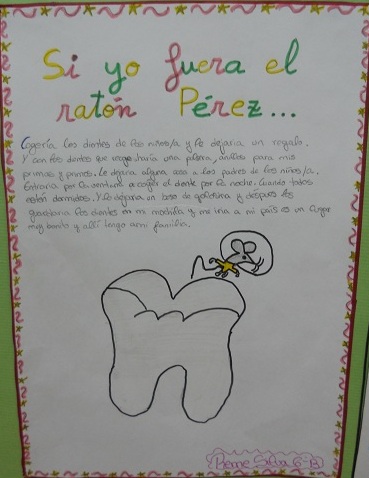 Si yo fuera el
ratón Pérez...
Cogería los dientes de los niños/a y le dejaria un regalo.
Y con los dientes que haria una pulsera, anillos para mis
primas y primos. Le dejaria alguna cosa a los padres de los niños/a.
Entraria por la ventana a coger el diente por la noche. Cuando todos
esten dormidos. Y le dejaria un beso de y después
guardaria los dientes en mi mochila y me iria a mi país es un lugar
muy bonito y allí tengo a mi familia.
6-B